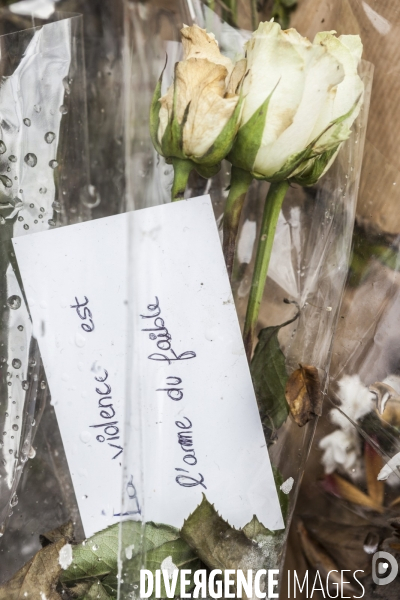 La violence est
l'arme du faible
DIVERGENCE IMAGES